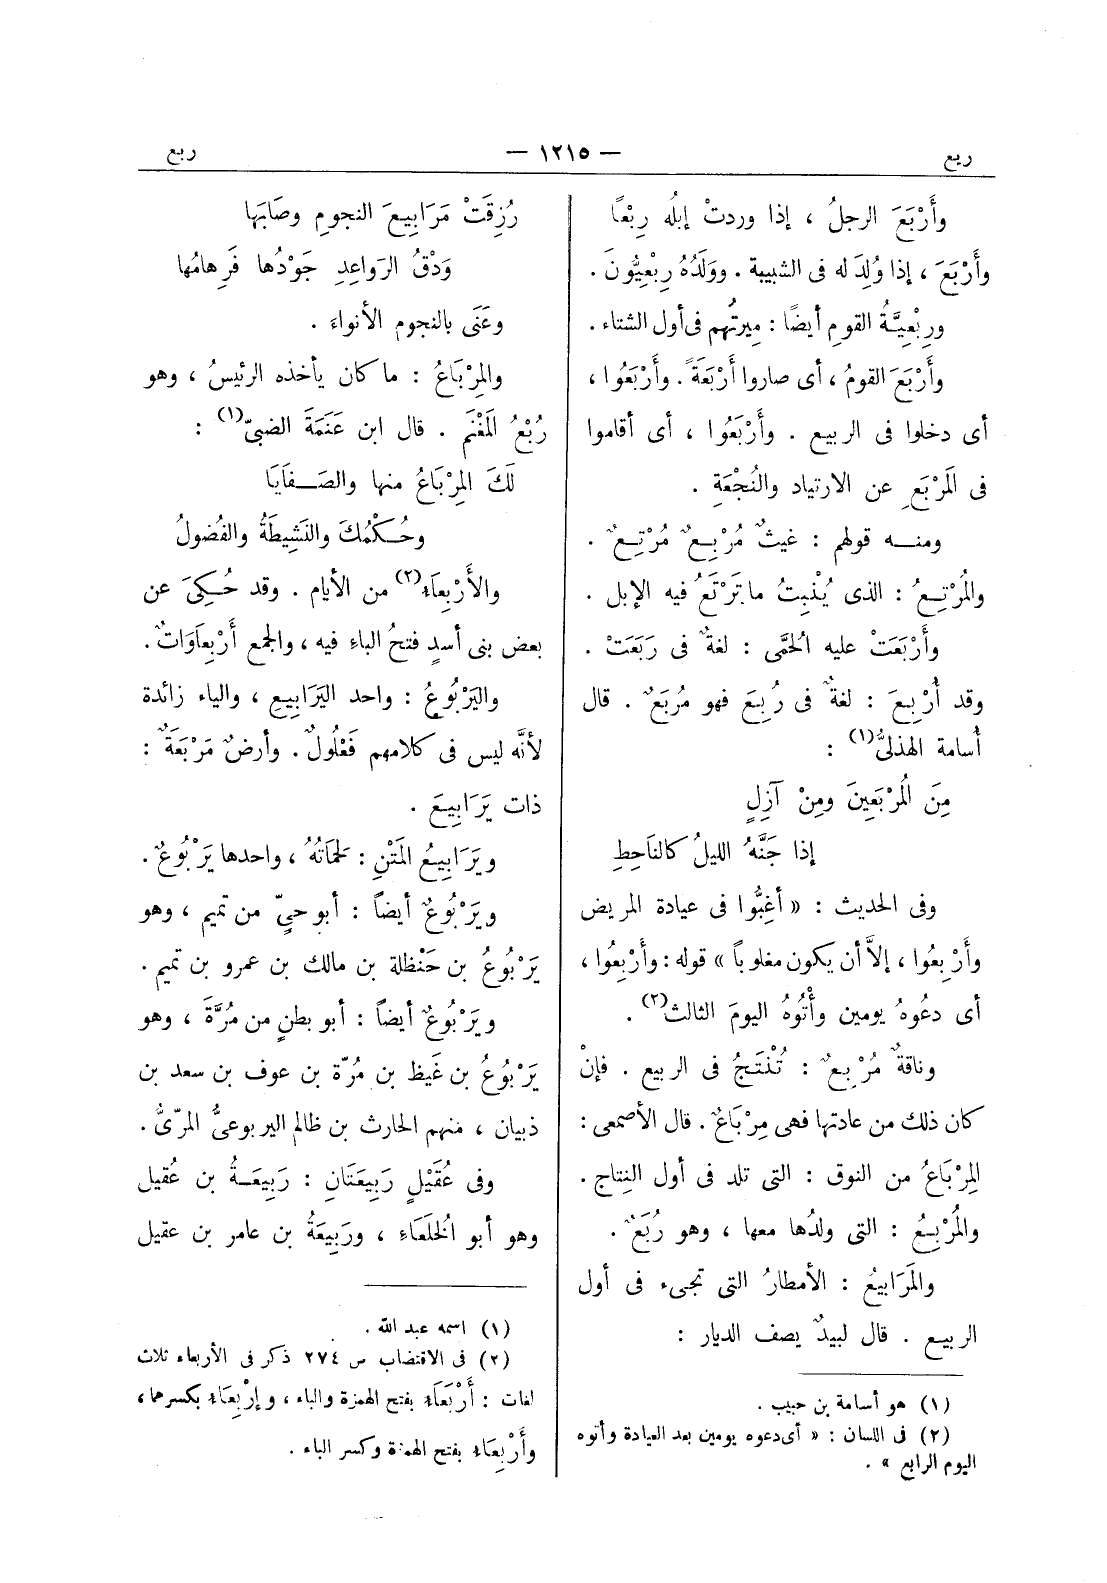 ربع
— ١٢١٥ —
ربع
وأَرْبَعَ الرجلُ ، إذا وردتْ إبلُه رِبْعًا
وأَرْبَعَ ، إذا وُلِدَ له فى الشبيبة . ووَلَدُهُ رِبْعِيُّونَ .
ورِبْعِيَّةُ القومِ أيضًا : مِيرتُهم فى أول الشتاء .
وأَرْبَعَ القومُ ، أى صاروا أَرْبَعَةً . وأَرْبَعُوا ،
أى دخلوا فى الربيع . وأَرْبَعُوا ، أى أقاموا
فى المَرْبَعِ عن الارتياد والنُجْعَةِ .
ومنه قولهم : غيثٌ مُرْبِعٌ مُرْتِعٌ .
والمُرْتِعُ : الذى يُنْبِتُ ما تَرْتَعُ فيه الإبل .
وأَرْبَعَتْ عليه الحُمَّى : لغةٌ فى رَبَعَتْ .
وقد أُرْبِعَ : لغةٌ فى رُبِعَ فهو مُرْبَعٌ . قال
أسامة الهذلىُّ(١) :
مِنَ المُرْبَعِينَ ومِنْ آزِلٍ
إذا جَنَّهُ الليلُ كالنَاحِطِ
وفى الحديث : « أَغِبُّوا فى عيادة المريض
وأَرْبِعُوا ، إلاَّ أن يكون مغلوباً » قوله : وأَرْبِعُوا ،
أى دعُوهُ يومين وأْتُوهُ اليومَ الثالث(٢) .
وناقةٌ مُرْبِعٌ : تُنْتَجُ فى الربيع . فإنْ
كان ذلك من عادتها فهى مِرْبَاعٌ . قال الأصمعى :
المِرْبَاعُ من النوق : التى تلد فى أول النِتاج .
والمُرْبِعُ : التى ولدُها معها ، وهو رُبَعٌ .
والمَرَابيعُ : الأمطارُ التى تجىء فى أول
الربيع . قال لبيدٌ يصف الديار :
(١) هو أسامة بن حبيب .
(٢) فى اللسان : « أى دعوه يومين بعد العيادة وأتوه
اليوم الرابع » .
رُزِقَتْ مَرَابِيعَ النجومِ وصَابَها
وَدْقُ الرواعِدِ جَوْدُها فَرِهامُها
وعَنَى بالنجوم الأنواءَ .
والمِرْبَاعُ : ما كان يأخذه الرئيسُ ، وهو
رُبْعُ المَغْنَم . قال ابن عَنَمَةَ الضبىّ(١) :
لَكَ المِرْبَاعُ منها والصَفَايَا
وحُكْمُكَ والنَشِيطَةُ والفُضولُ
والأَرْبِعَاءُ(٢) من الأيام . وقد حُكِىَ عن
بعض بنى أسدٍ فتحُ الباءِ فيه ، والجمع أَرْبِعَاوَاتٌ .
واليَرْبُوعُ : واحد اليَرَابِيعِ ، والياء زائدة
لأنَّه ليس فى كلامهم فَعْلُولٌ . وأرضٌ مَرْبَعَةٌ :
ذات يَرَابِيعَ .
ويَرَابِيعُ المَتْنِ : لَحَمَاتُهُ ، واحدها يَرْبُوعٌ .
ويَرْبُوعٌ أيضاً : أبو حىٍّ من تميم ، وهو
يَرْبُوعُ بن حَنْظلة بن مالك بن عمرو بن تميم .
ويَرْبُوعٌ أيضاً : أبو بطنٍ من مُرَّةَ ، وهو
يَرْبُوعُ بن غَيظ بن مُرّة بن عوف بن سعد بن
ذبيان ، منهم الحارث بن ظالم اليربوعىُّ المرّىُّ .
وفى عُقَيْلٍ رَبِيعَتَانِ : رَبِيعَةُ بن عُقيل
وهو أبو الخُلَعَاءِ ، ورَبِيعَةُ بن عامر بن عقيل
(١) اسمه عبد الله .
(٢) فى الاقتضاب س ٢٧٤ ذكر فى الأربعاء ثلاث
لغات : أَرْبَعَاء بفتح الهمزة والباء ، وإِرْبِعَاء بكسرهما ،
وأَرْبِعَاء بفتح الهمزة وكسر الباء .